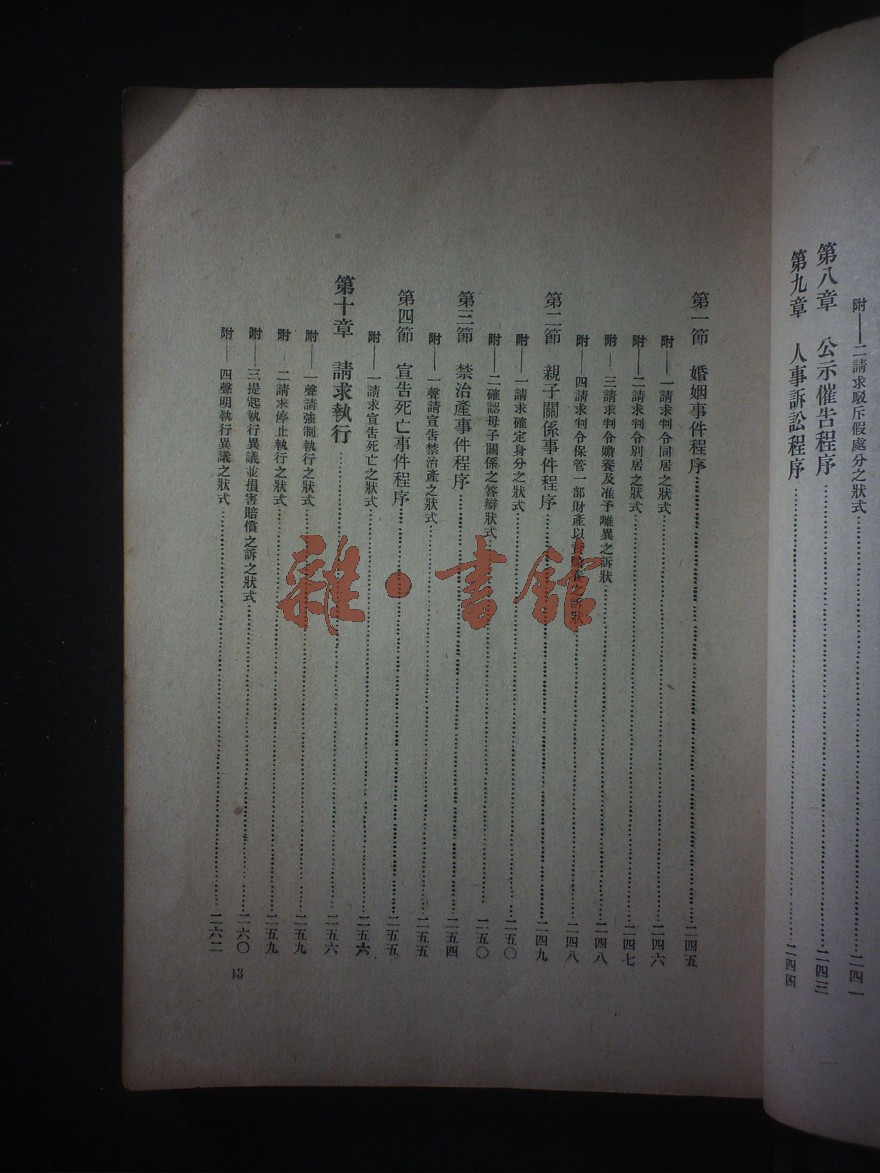 附——二請求駁斥假處分之狀式……二四一
第八章　公示催告程序……二四三
第九章　人事訴訟程序……二四四
第一節　婚姻事件程序……二四五
附——一請求判令同居之狀式……二四六
附——二請求判令別居之狀式……二四七
附——三請求判令贍養及准予離異之訴狀……二四八
附——四請求判令保管一部財產以資贍養之訴狀……二四八
第二節　親子關係事件程序……二四九
附——一請求確定身分之狀式……二五〇
附——二確認母子關係之答辯狀式……二五〇
第三節　禁治產事件程序……二五四
附——一聲請宣告禁治產之狀式……二五五
第四節　宣告死亡事件程序……二五五
附——一請求宣告死亡之狀式……二五六
第十章　請求執行……二五六
附——一聲請強制執行之狀式……二五九
附——二請求停止執行之狀式……二五九
附——三提起執行異議並損害賠償之訴之狀式……二六〇
附——四聲明執行異議之狀式……二六二
13
雜·書館